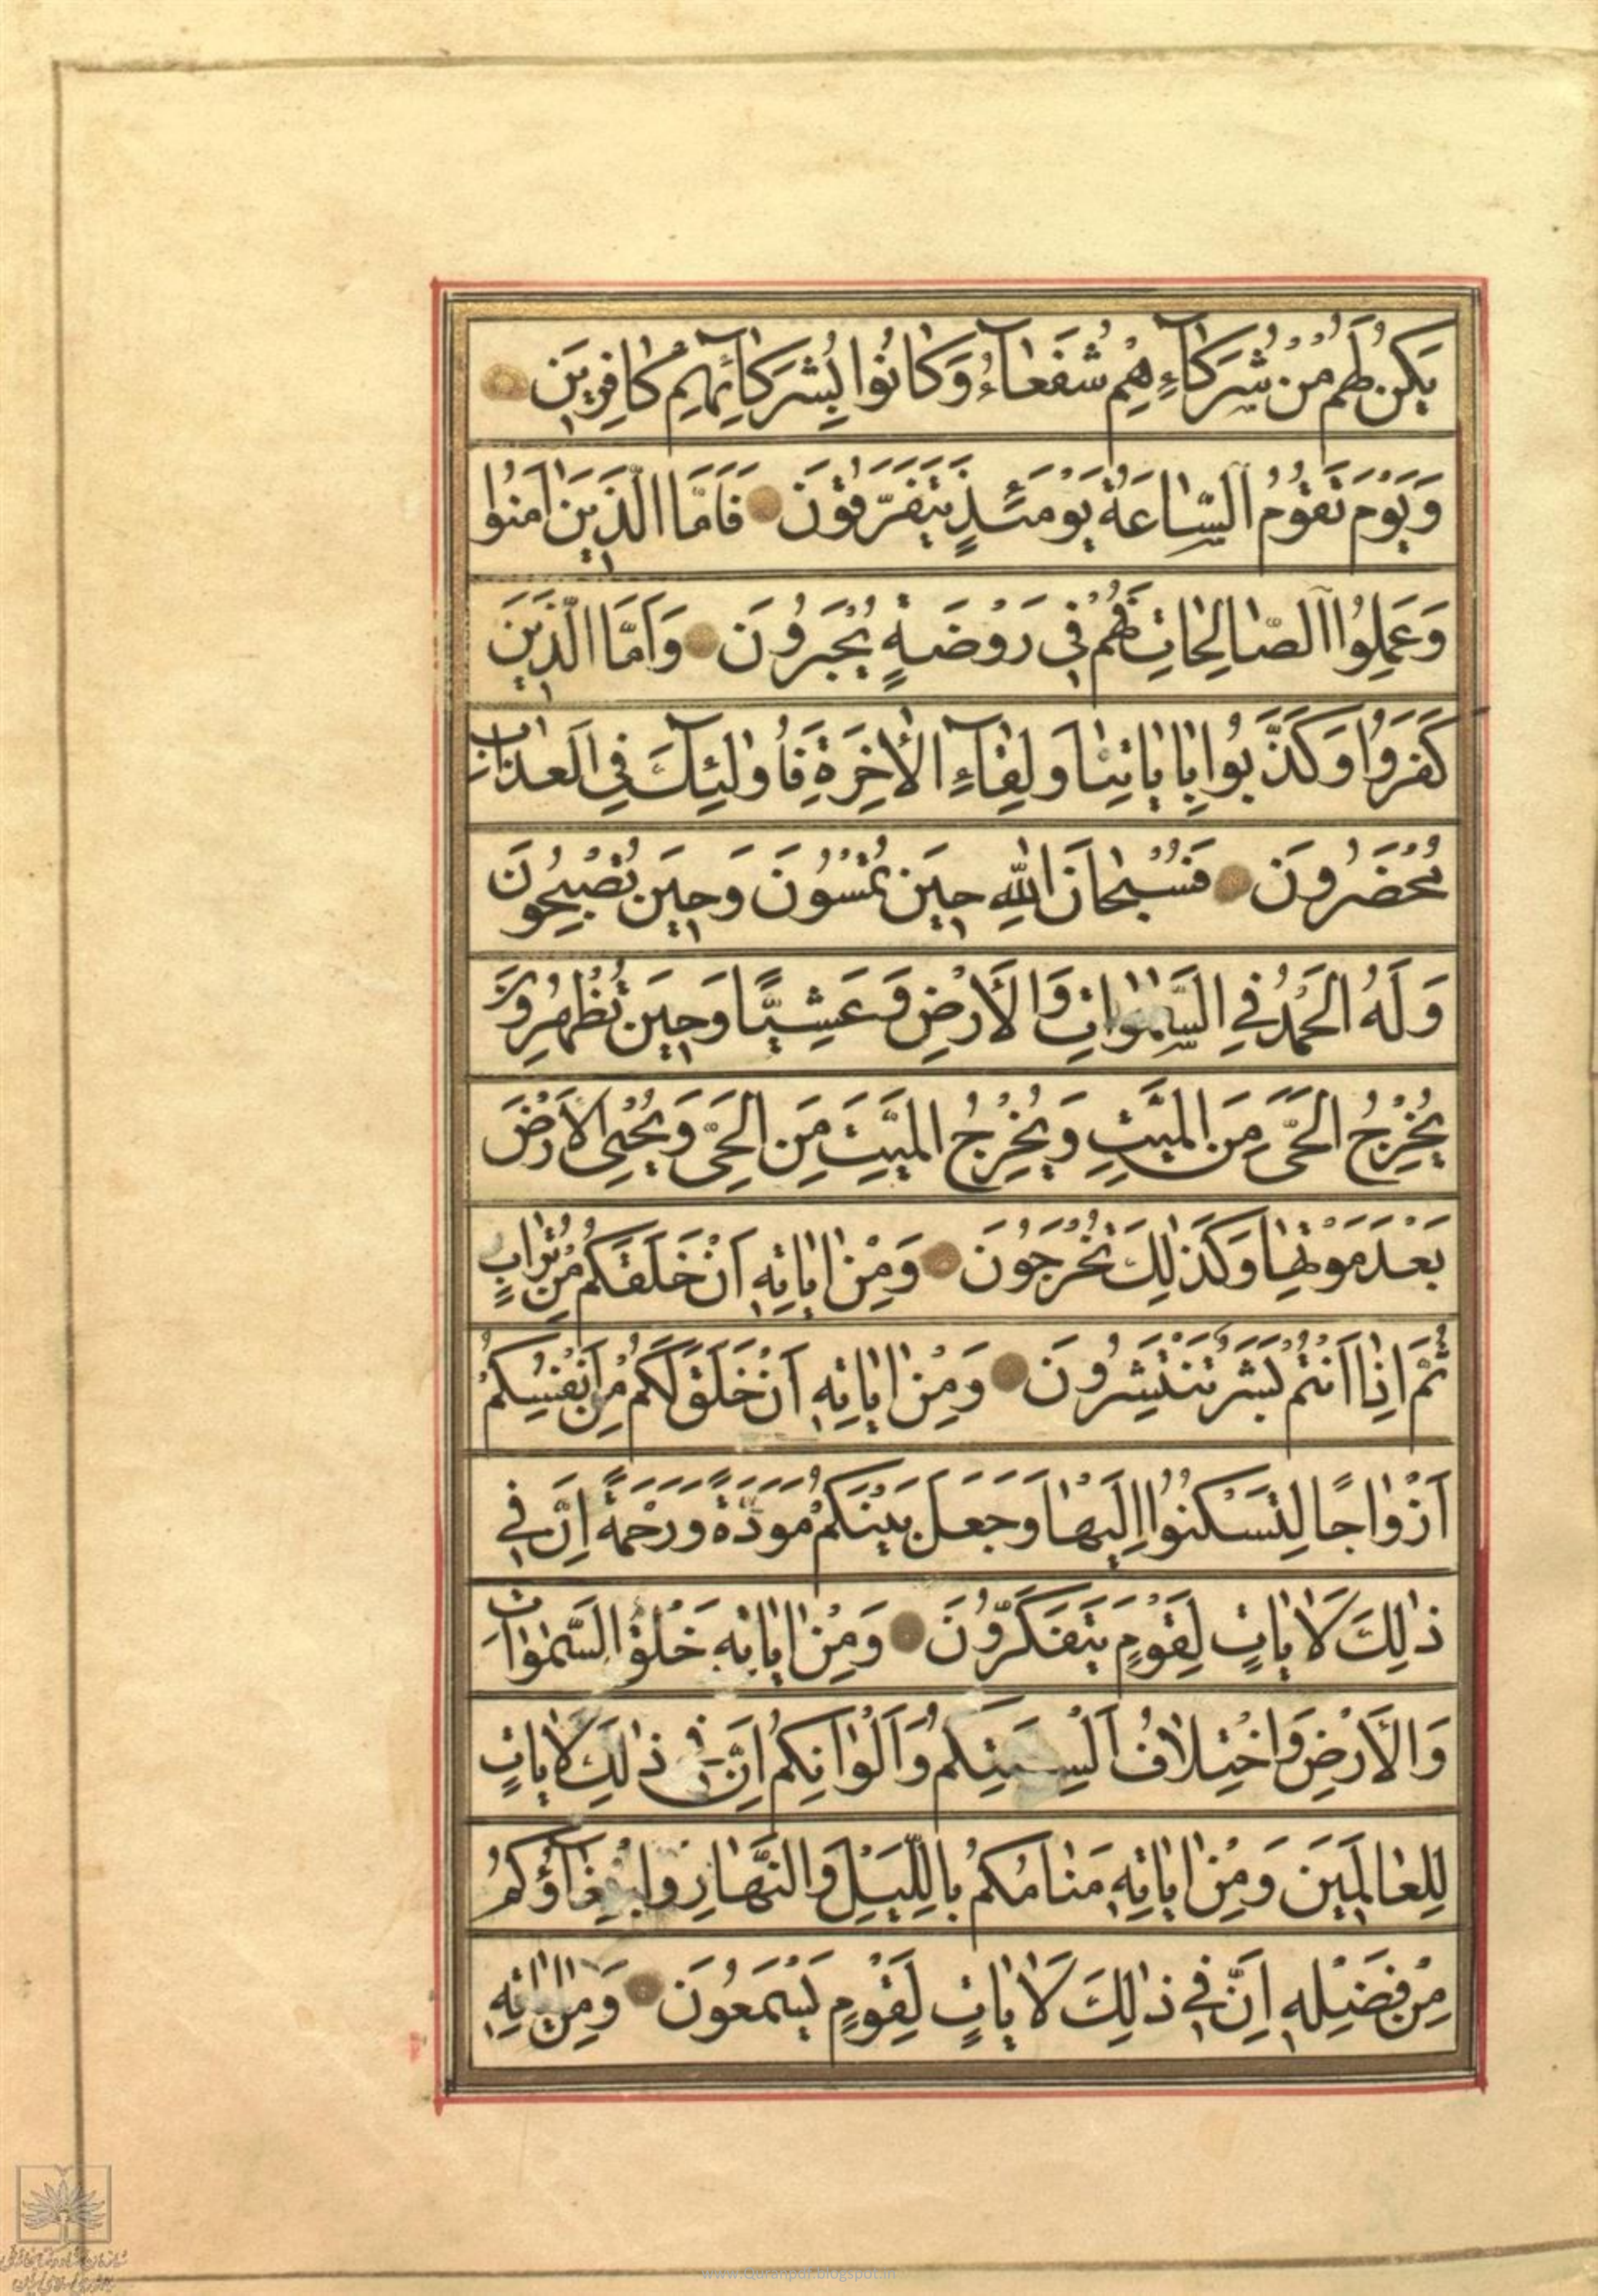 يَكُنْ لَهُمْ مِنْ شُرَكَاءِهِمْ شُفَعَآءُ وَكَانُوا بِشُرَكَآئِهِمْ كَافِرِينَ
وَيَوْمَ تَقُومُ السَّاعَةُ يَوْمَئِذٍ يَتَفَرَّقُونَ فَاَمَّا الَّذِينَ اٰمَنُوا
وَعَمِلُوا الصَّالِحَاتِ فَهُمْ فِي رَوْضَةٍ يُحْبَرُونَ وَاَمَّا الَّذِينَ
كَفَرُوا وَكَذَّبُوا بِاٰيَاتِنَا وَلِقَآءِ الْأٰخِرَةِ فَاُولٰئِكَ فِي الْعَذَابِ
مُحْضَرُونَ فَسُبْحَانَ اللّٰهِ حِينَ تُمْسُونَ وَحِينَ تُصْبِحُونَ
وَلَهُ الْحَمْدُ فِي السَّمٰوَاتِ وَالْأَرْضِ وَعَشِيًّا وَحِينَ تُظْهِرُونَ
يُخْرِجُ الْحَيَّ مِنَ الْمَيِّتِ وَيُخْرِجُ الْمَيِّتَ مِنَ الْحَيِّ وَيُحْيِي الْاَرْضَ
بَعْدَ مَوْتِهَا وَكَذٰلِكَ تُخْرَجُونَ وَمِنْ اٰيَاتِهِ اَنْ خَلَقَكُمْ مِنْ تُرَابٍ
ثُمَّ اِذَا اَنْتُمْ بَشَرٌ تَنْتَشِرُونَ وَمِنْ اٰيَاتِهِ اَنْ خَلَقَ لَكُمْ مِنْ اَنْفُسِكُمْ
اَزْوَاجًا لِتَسْكُنُوا اِلَيْهَا وَجَعَلَ بَيْنَكُمْ مَوَدَّةً وَرَحْمَةً اِنَّ فِي
ذٰلِكَ لَاٰيَاتٍ لِقَوْمٍ يَتَفَكَّرُونَ وَمِنْ اٰيَاتِهِ خَلْقُ السَّمٰوَاتِ
وَالْأَرْضِ وَاخْتِلَافُ اَلْسِنَتِكُمْ وَاَلْوَانِكُمْ اِنَّ فِي ذٰلِكَ لَاٰيَاتٍ
لِلْعَالَمِينَ وَمِنْ اٰيَاتِهِ مَنَامُكُمْ بِاللَّيْلِ وَالنَّهَارِ وَابْتِغَآؤُكُمْ
مِنْ فَضْلِهِ اِنَّ فِي ذٰلِكَ لَاٰيَاتٍ لِقَوْمٍ يَسْمَعُونَ وَمِنْ اٰيَاتِهِ
www.Quranpdf.blogspot.in